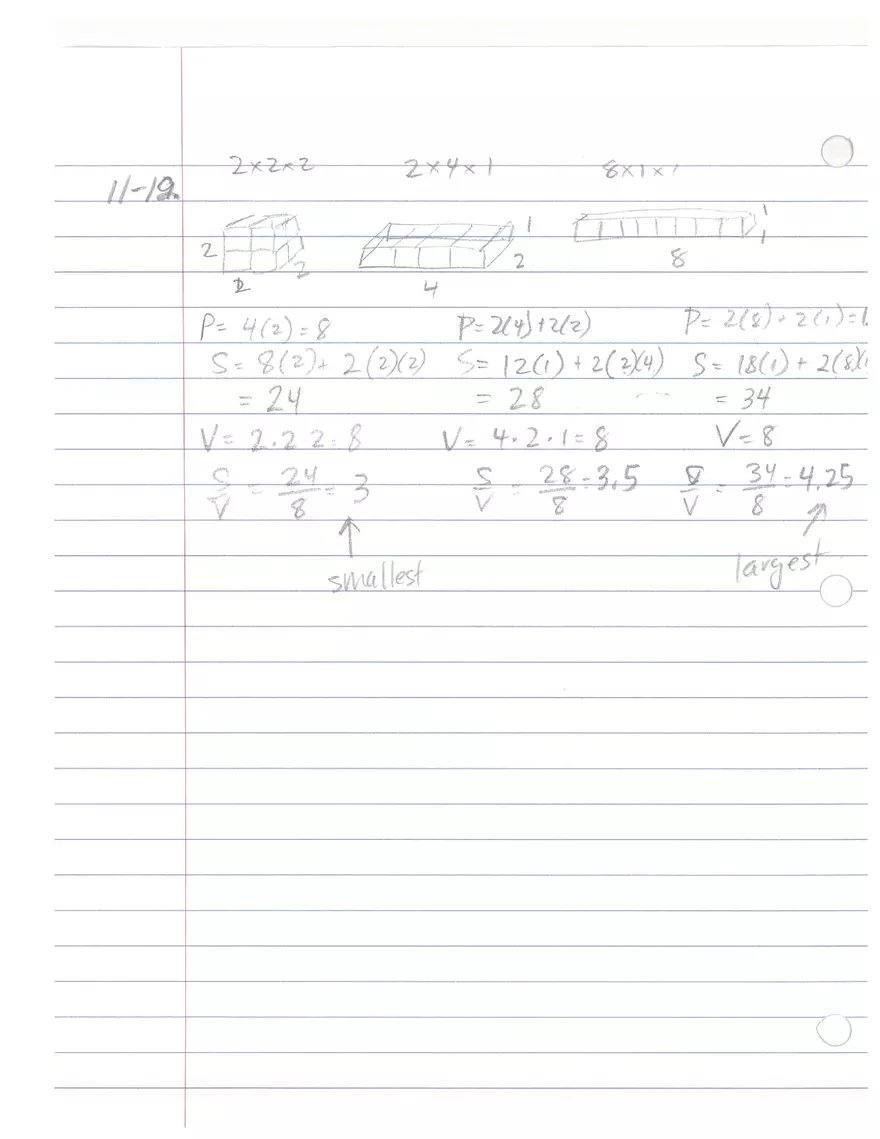 2×2×2 2×4×1 8×1×1
11-19.
2 2 2 1 2 4 1 1 8
P= 4(2)=8 P=2(4)+2(2) P= 2(8)+2(1)=1
S= 8(2)+ 2(2)(2) S= 12(1)+2(2)(4) S= 18(1)+ 2(8)(1
= 24 = 28 = 34
V= 2.2 2=8 V= 4.2.1=8 V=8
S/V = 24/8 = 3 S/V = 28/8 =3.5 S/V = 34/8 =4.25
smallest largest